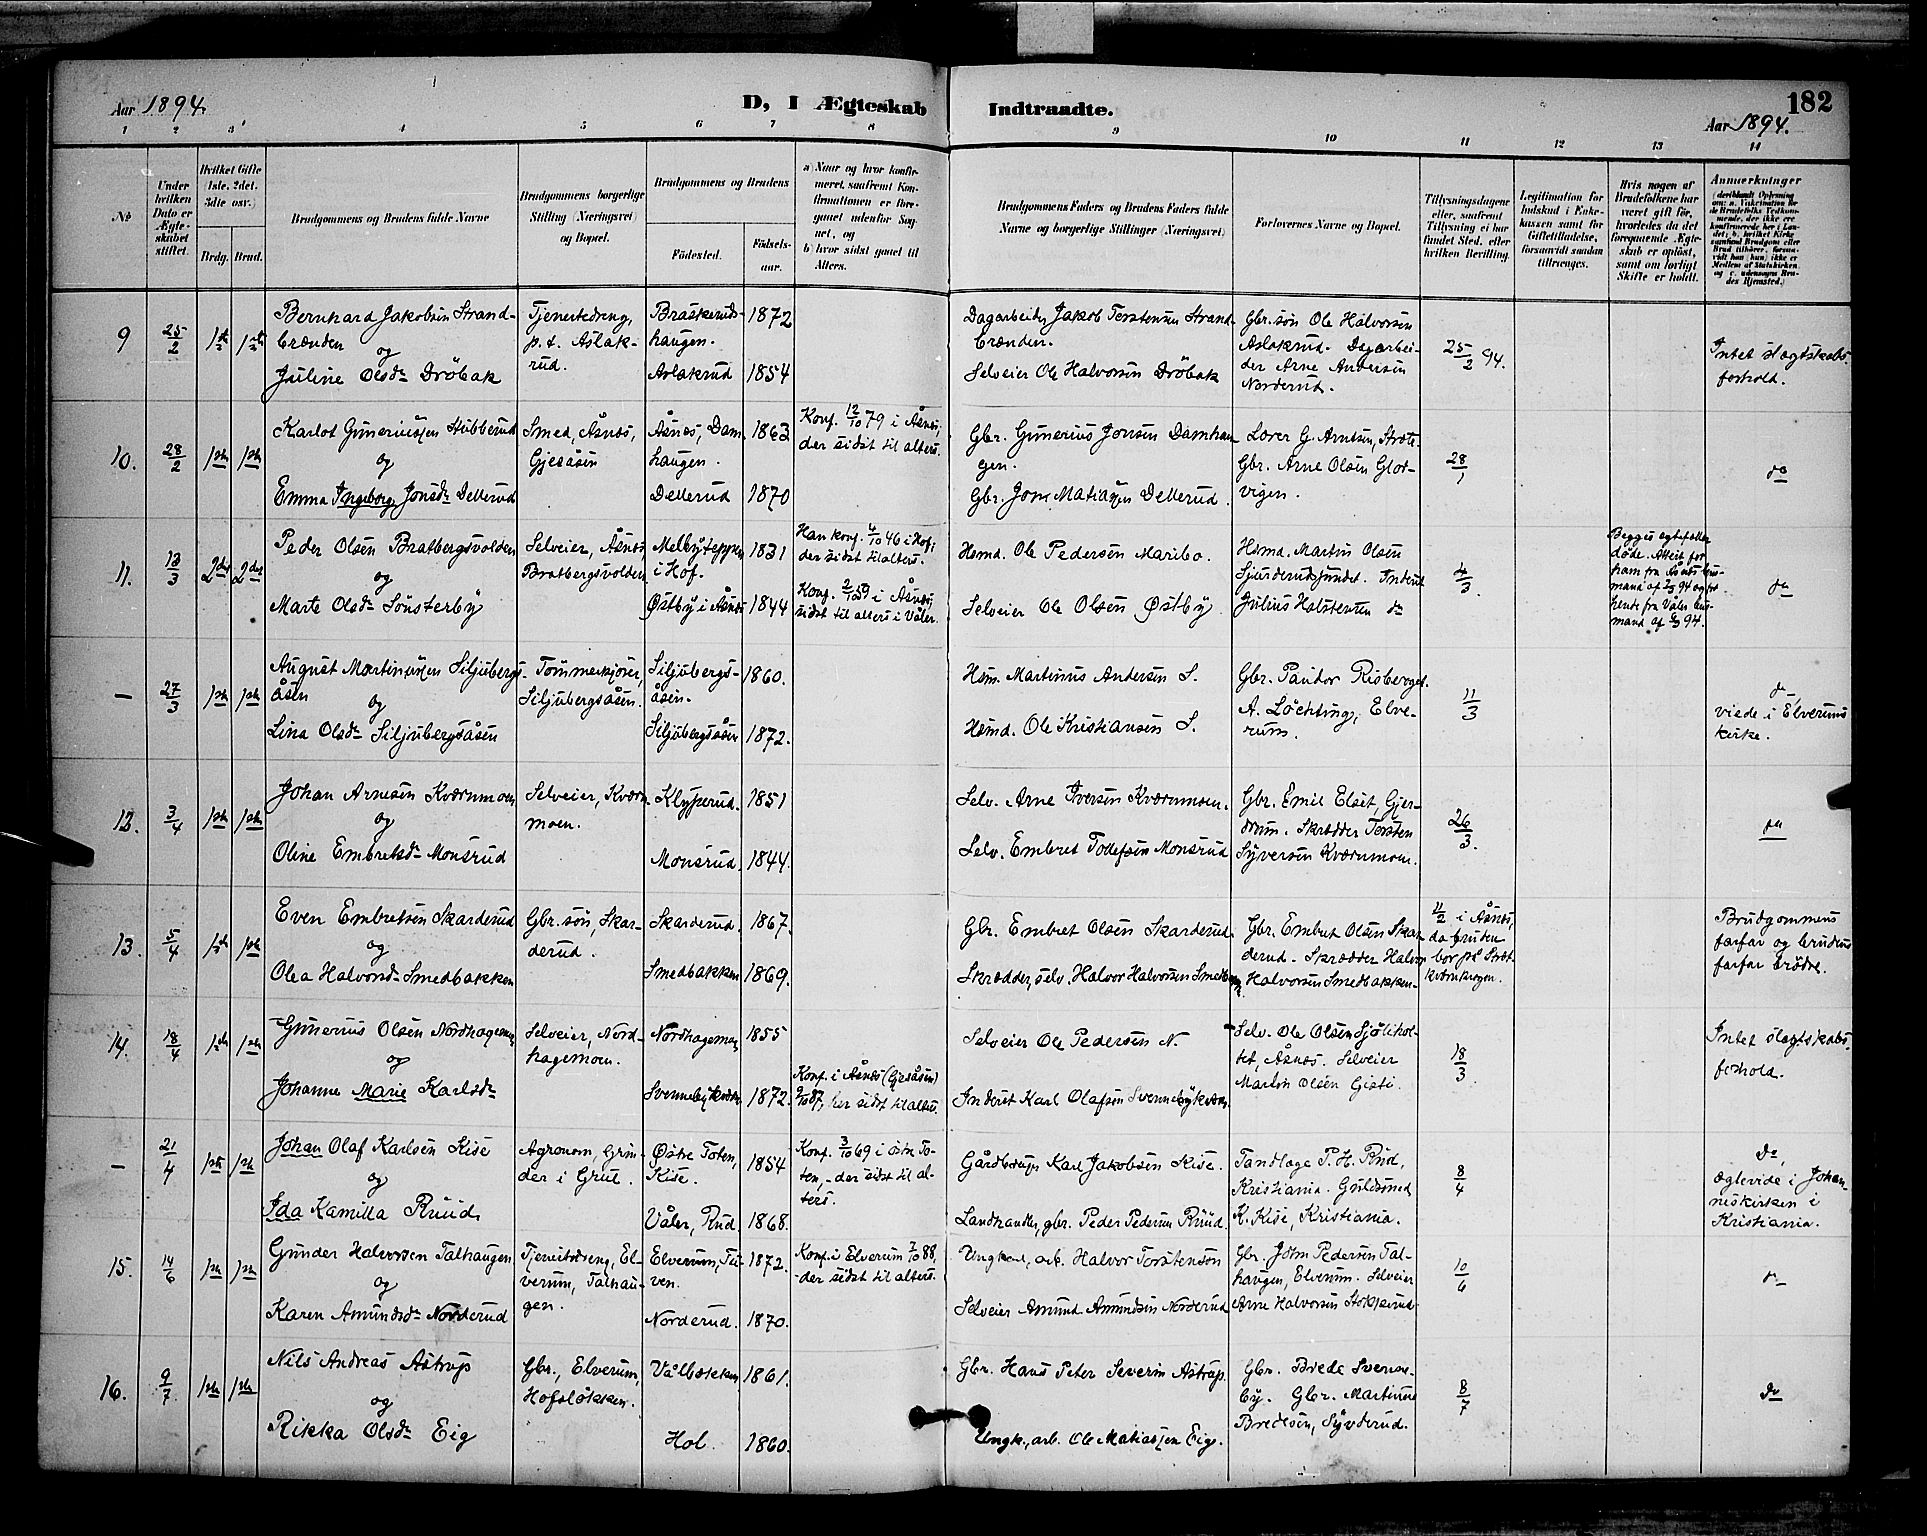 Aar 1894.
D, I Ægteskab Indtraadte.
182
Aar 1894.
1 2 3 4 5 6 7 8 9 10 11 12 13 14
No
Under hvilken Dato er Ægteskabet stiftet.
Hvilket Gifte (1ste, 2det, 3dte osv.)
Brdg. Brud.
Brudgommens og Brudens fulde Navne
Brudgommens borgerlige Stilling (Næringsvei) og Bopæl.
Brudgommens og Brudens
Fødested.
Fødselsaar.
a) Naar og hvor konfirmeret, saafremt Konfirmationen er foregaaet udenfor Sognet, og
b) hvor sidst gaaet til Alters.
Brudgommens Faders og Brudens Faders fulde Navne og borgerlige Stillinger (Næringsvei)
Forlovernes Navne og Bopæl.
Tillysningsdagene eller, saafremt Tillysning ei har fundet Sted, efter hvilken Bevilling.
Legitimation for Indskud i Enkekassen samt for Giftetilladelse, forsaavidt saadan tiltrænges.
Hvis nogen af Brudefolkene har været gift før, hvorledes da det foregaaende Ægteskab er opløst, samt om lovligt Skifte er holdt.
Anmærkninger
9
25/2
1ste 1ste
Bernhard Jakobsen Strandbrænden
og
Juline Olsdr Dröbak
Tjenestedreng, p.t. Aslakrud.
Braskerudshaugen. 1872
Aslakrud 1854
Dagarbeider Jakob Torstensen Strandbrænden.
Selveier Ole Halvorsen Dröbak
Gbr. sön Ole Halvorsen Aslakrud. Dagarbeider Arne Andersen Norderud.
25/2 94.
Intet slegtskabsforhold.
10.
28/2
1ste 1ste
Karlot Gunerius​sen Stubberud
og
Emma Ingeborg Jonsdr Dellerud
Smed, Åsnes, Gjesåsen
Åsnes, Damhaugen. 1863
Dellerud 1870
Konf. 12/10 79 i Åsnes, der sidst til alters.
Gbr. Gunerius Jonsen Damhaugen.
Gbr. Jon Matiassen Dellerud.
Lærer G. Arntsen,
Gbr. Arne Olsen Glorvigen.
28/1
do
11.
13/3
2det 2det
Peder Olsen Bratbergsvolden
og
Marte Olsdr Sönsterby
Selveier, Åsnes Bratbergsvolden
Melbyteppen i Hof. 1831
Østby i Åsnes 1844
Han konf. 4/10 46 i Hof, der sidst til alters.
Konf. 2/10 59 i Åsnes, sidst til alters i Våler.
Hsmd. Ole Pedersen Maribo.
Selveier Ole Olsen Østby.
Hsmd. Martin Olsen
Julius Halstensen do
4/3.
Begges egtefeller døde. Attest for ham fra Åsnes lensmand af 94 og for hende fra Våler lensmand af 94.
do
—
27/3
1ste 1ste
August Martinussen Siljubergsåsen
og
Lina Olsdr Siljubergsåsen
Tömmerkjörer, Siljubergsåsen.
Siljubergsåsen. 1860.
Siljubergsåsen 1872.
Hsm. Martinus Andersen S.
Hsmd. Ole Kristiansen S.
Gbr. Pauder Risberget.
A. Löchting, Elverum.
11/3
do
viede i Elverums kirke.
12.
3/4
1ste 1ste
Johan Arnesen Kværnmoen
og
Oline Embretsdr Monsrud
Selveier, Kværnmoen.
Klyperud. 1851
Monsrud. 1844.
Selv. Arne Iversen Kværnmoen.
Selv. Embret Tollefsen Monsrud
Gbr. Emil Elset, Gjerdrum. Skrædder Torsten Syversen Kværnmoen.
26/3.
do
13.
5/4
1ste 1ste
Even Embretsen Skarderud
og
Olea Halvorsdr Smedbakken
Gbr. sön, Skarderud.
Skarderud. 1867.
Smedbakken 1869.
Gbr. Embret Olsen Skarderud.
Skrædder, selv. Halvor Halvorsen Smedbakken
Gbr. Embret Olsen Skarderud. Skrædder Halvor Halvorsen Smedbakken.
11/2 i Åsnes, da bruden bor på
Brudgommens farfar og brudens farfar brödre.
14.
18/4
1ste 1ste
Gunerius Olsen Nordhagemoen
og
Johanne Marie Karlsdr
Selveier, Nordhagemoen.
Nordhagemoen 1855
Svennebykværn 1872.
Konf. i Åsnes (Gjesåsen) 9/10 87, her sidst til alters.
Selveier Ole Pedersen N.
Inderst Karl Olafsen Svennebykværn
Selv. Ole Olsen Sjöliholtet, Åsnes. Selveier Martin Olsen Gjeti.
18/3
Intet slegtskabsforhold.
—
21/4
1ste 1ste
Johan Olaf Karlsen Kise
og
Ida Kamilla Ruud.
Agronom, Grinder i Grue.
Østre Toten, Kise. 1854
Våler, Rud 1868.
Konf. 3/10 69 i østre Toten, - der sidst til alters.
Gårdbruger Karl Jakobsen Kise.
Landhandler, gbr. Peder Pedersen Ruud.
Tandlæge P. H. Rud, Kristiania. Guldsmed K. Kise, Kristiania.
8/4
do,
ægteviede i Johanneskirken i Kristiania.
15.
14/6
1ste 1ste
Gunder Halvorsen Talhaugen
og
Karen Amundsdr Norderud
Tjenestedreng, Elverum, Talhaugen.
Elverum, Tuven. 1872.
Norderud. 1870.
Konf. i Elverum 7/10 88, - der sidst til alters.
Ungkarl, arb. Halvor Torstensön
Selveier Amund Amundsen Norderud
Gbr. John Pedersen Talhaugen, Elverum. Selveier Arne Halvorsen Stokkerud
10/6
do
16.
9/7.
1ste 1ste
Nils Andreas Astrup
og
Rikka Olsdr Eig
Gbr., Elverum, Hofslökken.
Vålbakken 1861.
Hol. 1860.
Gbr. Hans Peter Severin Astrup.
Ungk., arb. Ole Matiassen Eig.
Gbr. Brede Svenneby. Gbr. Martinus Bredesen, Syvderud.
8/7
do